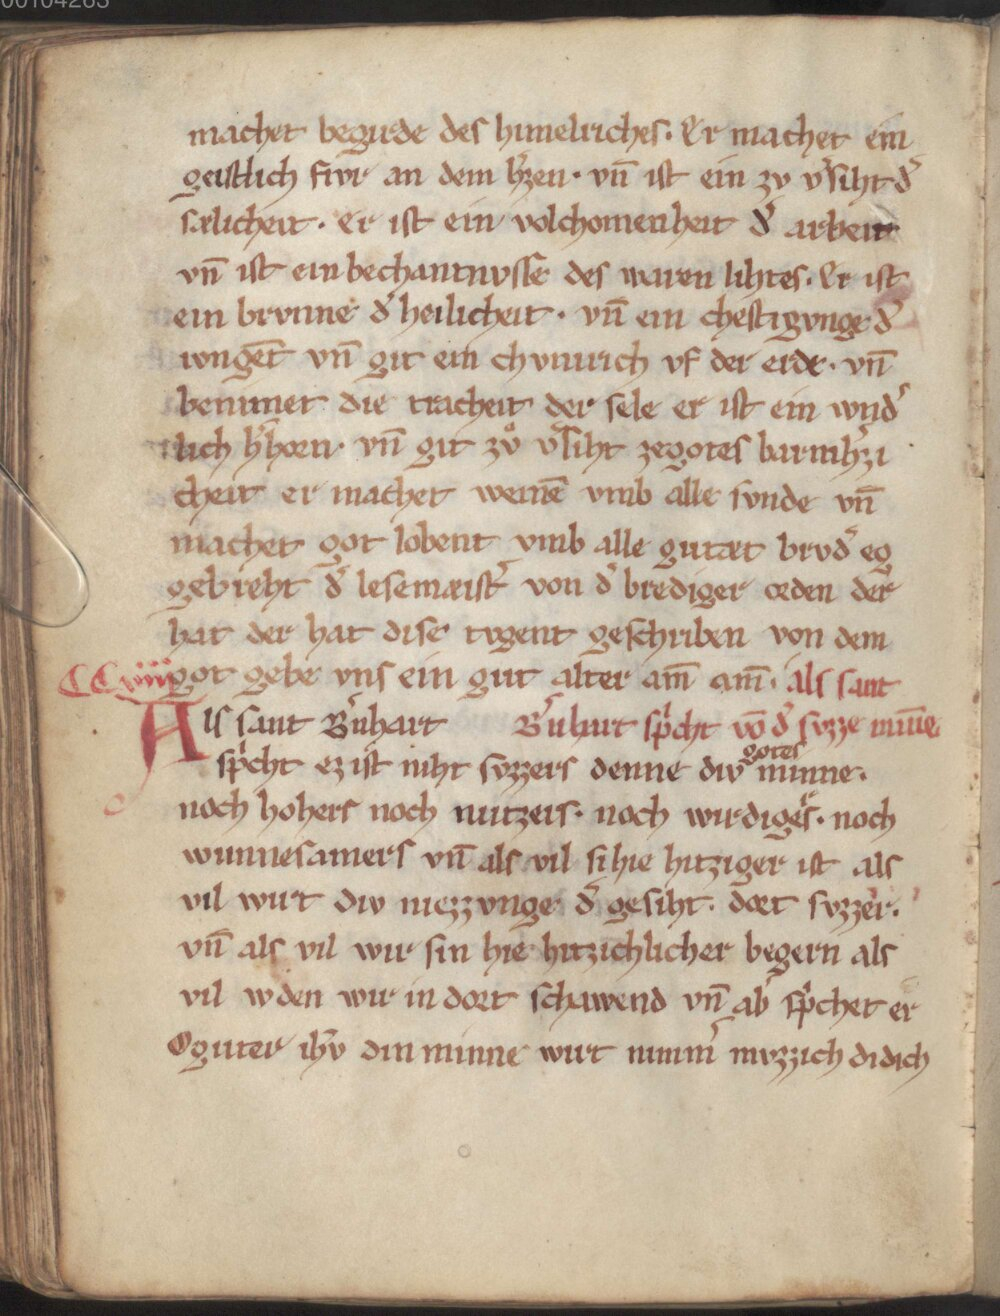 00104263
machet begirde des himelriches. Er machet ein
geistlich fivr an dem h̾zen. vn̄ ist ein zv v̾siht d̾
sælicheit. er ist ein volchomenheit d̾ arbeit
vn̄ ist ein bechantnvsse des waren lihtes. Er ist
ein brvnne d̾ heilicheit. vn̄ ein chestigvnge d̾
ivngēt vn̄ git ein chvnirich vf der erde. vn̄
benimet die tracheit der sele er ist ein wnd̾
lich h̾horn. vn̄ git zvͦ v̾siht zegotes barmh̾zi
cheit er machet weinē vmb alle svnde vn̄
machet got lobent vmb alle gutæt brvd̾ eg
gebreht d̾ lesemæist̾ von d̾ brediger orden der
hat der hat dise tvgent geschriben von dem
got gebe vns ein gut alter am̄ am̄. als sant
CCxviiii
Als sant B̾nhart B̾nhart sp̾cht vō d̾ svzze min̄e
sp̾cht ez ist niht svzzers denne div gotes minne.
noch hohers noch nutzers. noch wirdiges̾. noch
wunnesamers vn̄ als vil si hie hitziger ist als
vil wirt div niezzvnge d̾ gesiht. dort svzzer.
vn̄ als vil wir sin hie hitzichlicher begern als
vil wden wir in dort schawend vn̄ ab̾ sp̾chet er
O guter ih̾v din minne wirt nimm̾ mvzzich di dich